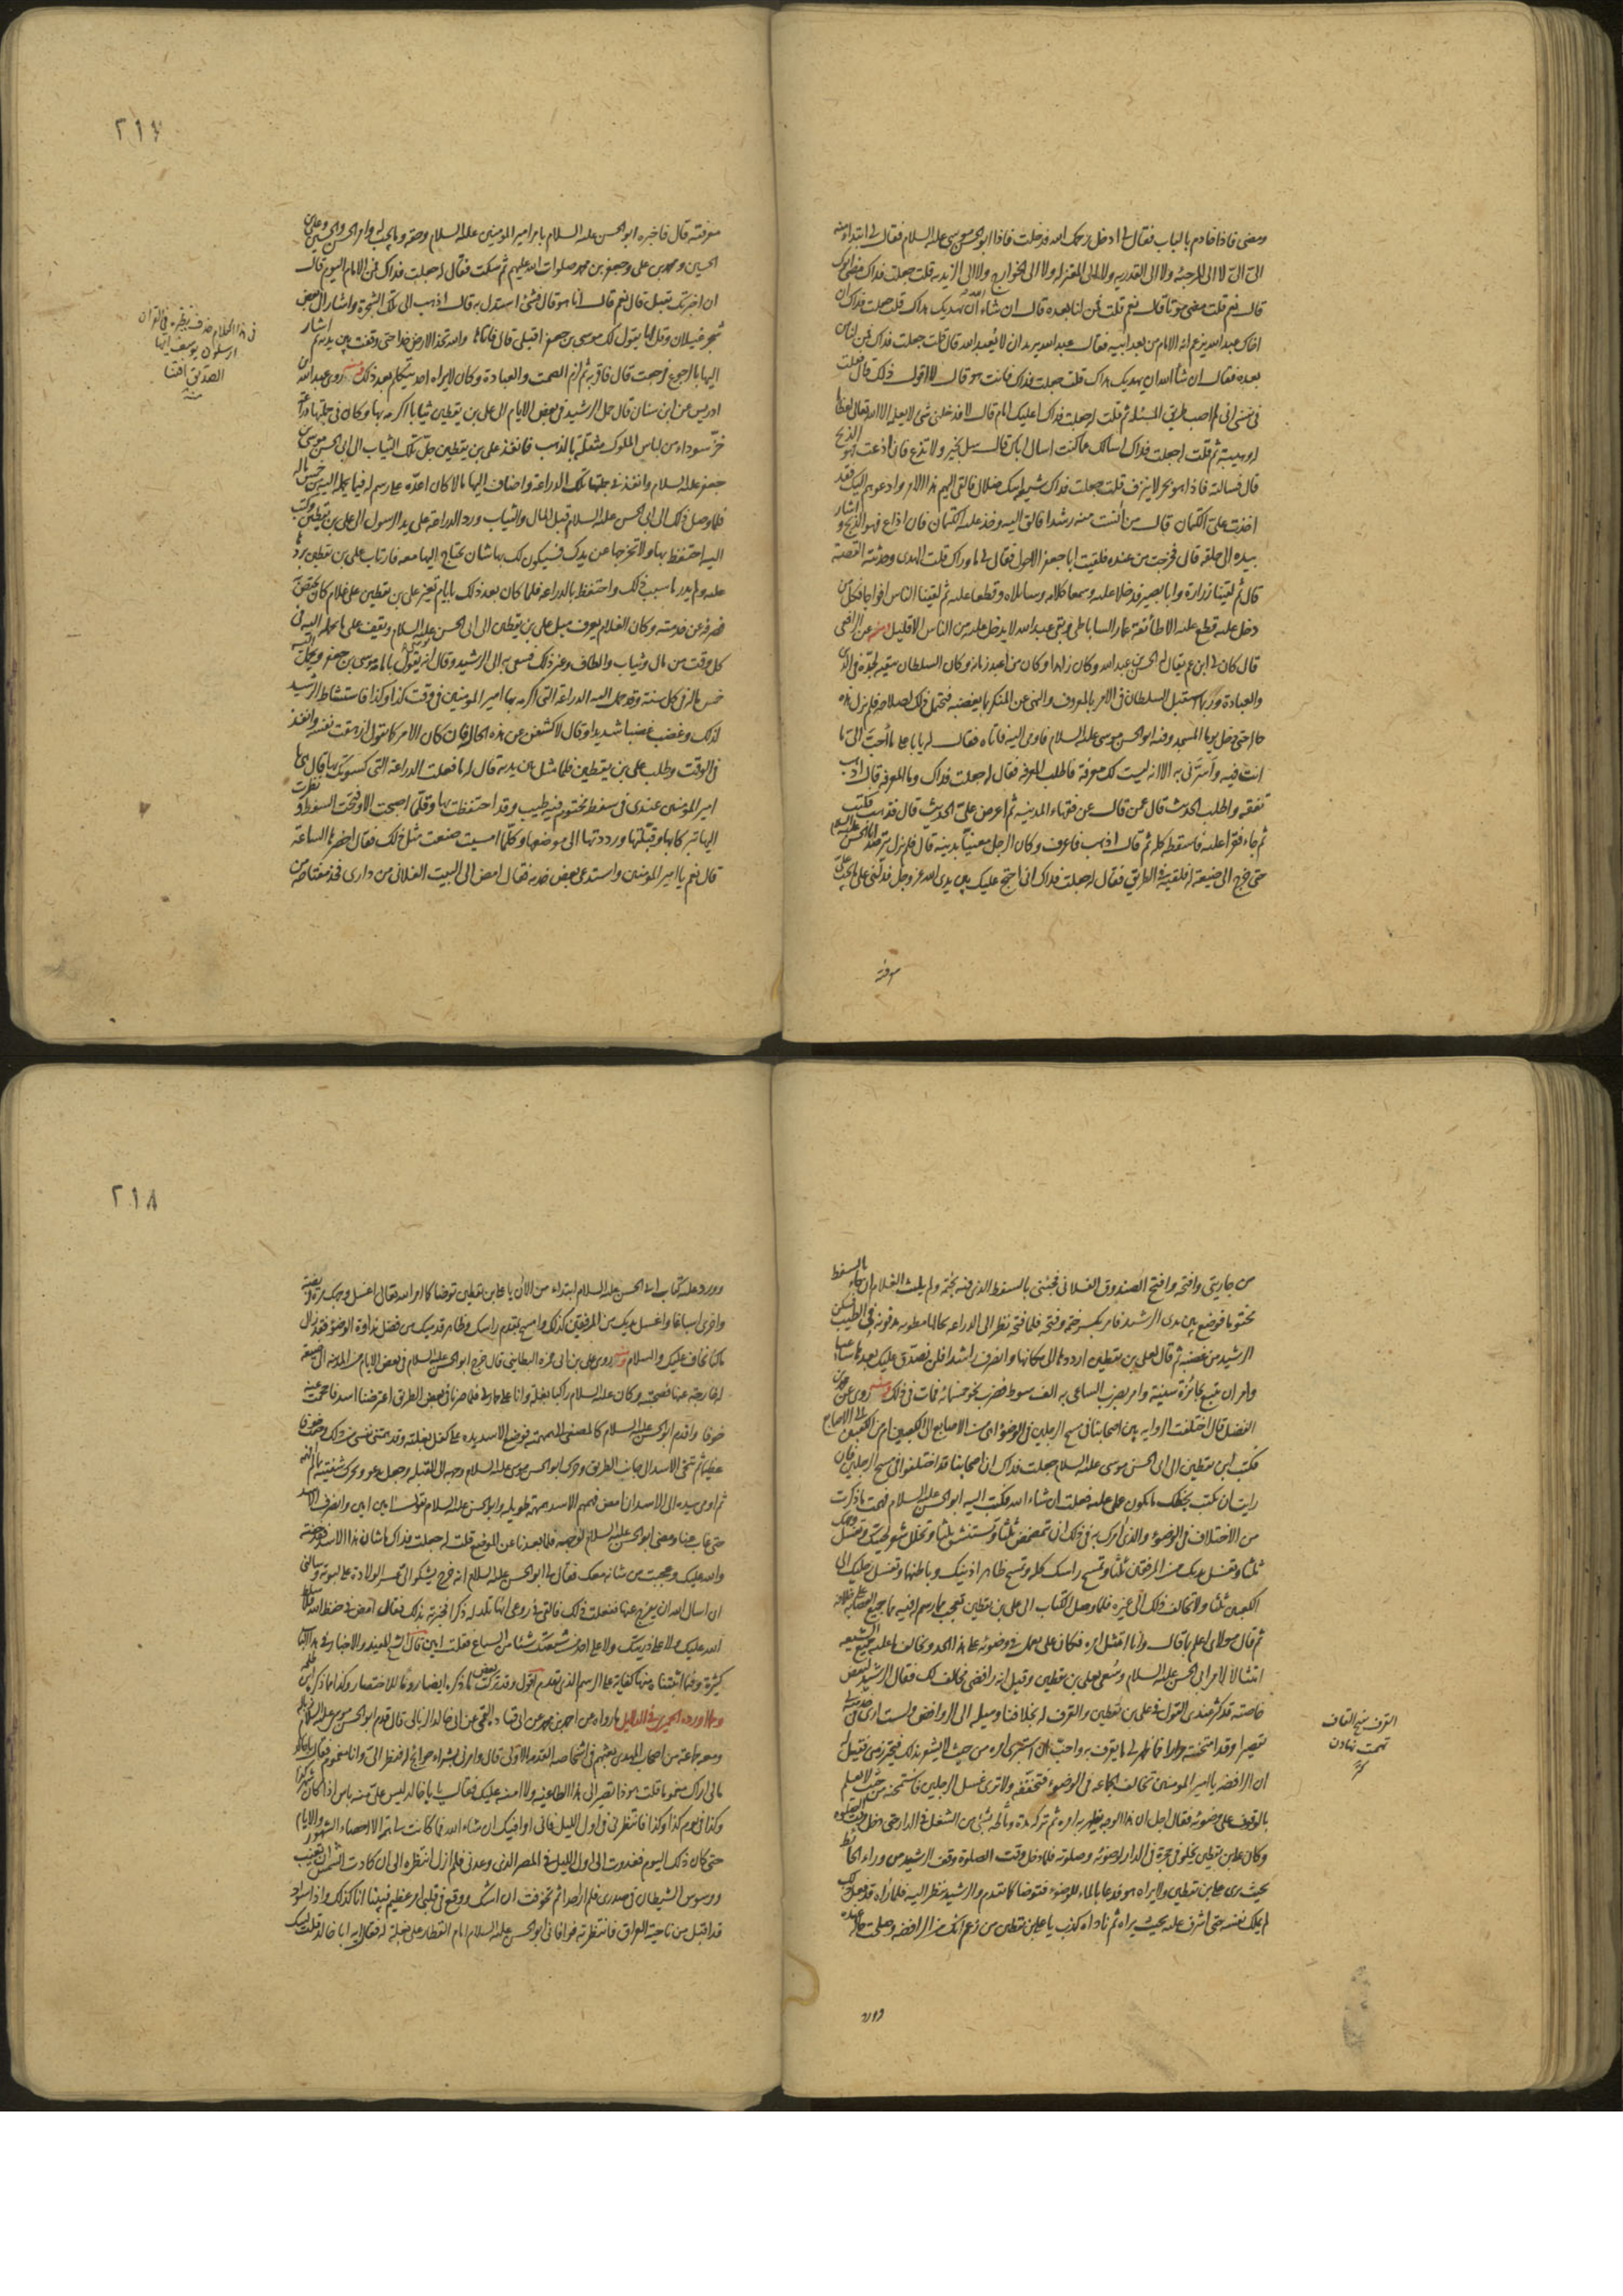 ومضى فاذا خادم بالباب فقال لي ادخل رحمك الله فدخلت فاذا ابو الحسن موسى عليه السلام فقال لي ابتداء منه
الىّ الىّ لا الى المرجئه ولا الى القدريه ولا الى المعتزله ولا الى الخوارج ولا الى الزيديه قلت جعلت فداك مضى ابوك
قال نعم قلت مضى موتا قال نعم قلت فمن لنا بعده قال ان شاء الله ان يهديك هداك قلت جعلت فداك ان
اخاك عبد الله يزعم انه الامام من بعد ابيه فقال عبد الله يريد ان لا يعبد الله قال قلت جعلت فداك فمن لنا من
بعده فقال ان شاء الله ان يهديك هداك قلت جعلت فداك فانت هو قال لا اقول ذلك قال فقلت
في نفسي اني لم اصب طريق المسئله ثم قلت له جعلت فداك اعليك امام قال لا فدخلني شئ لا يعلمه الا الله تعالى اعظاما
له وهيبته ثم قلت له جعلت فداك اسالك عما كنت اسال اباك قال سل تخبر ولا تذع فان اذعت فهو الذبح
قال فسالته فاذا هو بحر لا ينزف قلت جعلت فداك شيعة ابيك ضلال فالقي اليهم هذا الامر وادعوهم اليك فقد
اخذت علىّ الكتمان قال من آنست منه رشدا فالق اليه وخذ عليه الكتمان فان اذاع فهو الذبح واشار
بيده الى حلقه قال فخرجت من عنده فلقيت ابا جعفر الاحول فقال لي ما وراك قلت الهدى وحدثته القصة
قال ثم لقينا زرارة وابا بصير فدخلا عليه وسمعا كلامه وساءلاه وقطعا عليه ثم لقينا الناس افواجا فكل من
دخل عليه قطع عليه الا طائفة عمار الساباطى وبقي عبد الله لا يدخل عليه من الناس الا قليل ومنه عن الرافعى
قال كان لي ابن عم يقال له الحسن بن عبد الله وكان زاهدا وكان من اعبد زمانه وكان السلطان يتقيه لجده في الدين
والعبادة وربما استقبل السلطان في الامر بالمعروف والنهى عن المنكر بما يغضبه فيحتمل ذلك لصلاحه فلم يزل هذه
حاله حتى دخل يوما المسجد وفيه ابو الحسن موسى عليه السلام فاومى اليه فاتاه فقال له يا با على ما أحب الىّ ما
انت فيه وأسرّني به الا انه ليست لك معرفة فاطلب المعرفة فقال له جعلت فداك وما المعرفة قال اذهب
تفقه واطلب الحديث قال عمن قال عن فقهاء المدينه ثم اعرض علىّ الحديث قال فذهب فكتب
ثم جاء فقرأ عليه فاسقطه كله ثم قال اذهب فاعرف وكان الرجل معنيا بدينه قال فلم يزل يترصد ابا الحسن عليه السلام
حتى خرج الى ضيعة له فلقيه في الطريق فقال له جعلت فداك اني احتج عليك بين يدى الله عز وجل فدلّني على ما تجب علىّ
معرفته
٢١٧
معرفته قال فاخبره ابو الحسن عليه السلام بامر امير المؤمنين عليه السلام وحقه وما يجب له وامر الحسن والحسين وعلى بن
الحسين ومحمد بن على وجعفر بن محمد صلوات الله عليهم ثم سكت فقال له جعلت فداك فمن الامام اليوم قال
ان اخبرتك تقبل قال نعم قال انا هو قال فشئ استدل به قال اذهب الى تلك الشجرة واشار الى بعض
شجر غيلان وقل لها يقول لك موسى بن جعفر اقبلى قال فاتيتها والله تخد الارض خدا حتى وقفت بين يديه ثم اشار
اليها بالرجوع فرجعت قال فاقر به ثم لزم الصمت والعبادة وكان لا يراه احد يتكلم بعد ذلك ومنه روى عبد الله بن
ادريس عن ابن سنان قال حمل الرشيد في بعض الايام الى على بن يقطين ثيابا اكرمه بها وكان في جملتها دراعة
خزّ سوداء من لباس الملوك مثقلة بالذهب فانفذ على بن يقطين جلّ تلك الثياب الى ابى الحسن موسى بن
جعفر عليه السلام وانفذ في جملتها تلك الدراعة واضاف اليها مالا كان اعدّه على رسم له فيما يحمله اليه من خمس ماله
فلما وصل ذلك الى ابى الحسن عليه السلام قبل المال والثياب ورد الدراعة على يد الرسول الى على بن يقطين وكتب
اليه احتفظ بها ولا تخرجها عن يدك فسيكون لك بها شان تحتاج اليها معه فارتاب على بن يقطين بردّها
عليه ولم يدر ما سبب ذلك واحتفظ بالدراعه فلما كان بعد ذلك بايام تغير على بن يقطين على غلام كان يختص به
فصرفه عن خدمته وكان الغلام يعرف ميل على بن يقطين الى ابى الحسن عليه السلام ويقف على ما يحمله اليه في
كل وقت من مال وثياب والطاف وغير ذلك فسعى به الى الرشيد وقال انه يقول بامامة موسى بن جعفر ويحمل اليه
خمس ماله في كل سنة وقد حمل اليه الدراعة التى اكرمه بها امير المؤمنين في وقت كذا وكذا فاستشاط الرشيد
لذلك وغضب غضبا شديدا وقال لاكشفن عن هذه الحال فان كان الامر كما تقول ازهقت نفسه وانفذ
في الوقت وطلب على بن يقطين فلما مثل بين يديه قال له ما فعلت الدراعة التى كسوتك بها قال هى يا
امير المؤمنين عندى في سفط مختوم فيه طيب وقد احتفظت بها وقلّما اصبحت الا وفتحت السفط ونظرت
اليها تبركا بها وقبّلتها ورددتها الى موضعها وكلّما امسيت صنعت مثل ذلك فقال احضرها الساعة
قال نعم يا امير المؤمنين واستدعى بعض خدمه فقال امض الى البيت الفلانى من دارى فخذ مفتاحه من
في هذا الكلام حذف نظيره في القران
ارسلون يوسف ايها
الصديق افتنا
منه
من جاريتى وافتحه وافتح الصندوق الفلانى فجئنى بالسفط الذى فيه بختمه ولم يلبث الغلام ان جاء بالسفط
مختوما فوضع بين يدى الرشيد فامر بكسر ختمه وفتحه فلما فتحه نظر الى الدراعه بحالها مطويه مدفونه في الطيب فسكن
الرشيد من غضبه ثم قال لعلى بن يقطين ارددها الى مكانها وانصرف راشدا فلن نصدق عليك بعدها ساعيا
وامر ان يتبع بجائزة سنية وامر بضرب الساعى به الف سوط فضرب نحو خمسمائه فمات في ذلك ومنه روى عن محمد بن
الفضل قال اختلفت الروايه بين اصحابنا في مسح الرجلين في الوضوء اهى من الاصابع الى الكعبين ام من الكعبين الى الاصابع
فكتب ابن يقطين الى ابى الحسن موسى عليه السلام جعلت فداك ان اصحابنا قد اختلفوا في مسح الرجلين فان
رايت ان تكتب بخطك ما يكون عملى عليه فعلت ان شاء الله فكتب اليه ابو الحسن عليه السلام فهمت ما ذكرت
من الاختلاف في الوضوء والذى آمرك به في ذلك ان تمضمض ثلثا وتستنشق ثلثا وتخلل شعر لحيتك وتغسل وجهك
ثلثا وتغسل يديك من المرفقين ثلثا وتمسح راسك كله وتمسح ظاهر اذنيك وباطنهما وتغسل رجليك الى
الكعبين ثلثا ولا تخالف ذلك الى غيره فلما وصل الكتاب الى على بن يقطين تعجب مما رسم له فيه مما جميع العصابه على خلافه
ثم قال مولاى اعلم بما قال وانا امتثل امره فكان على يعمل في وضوئه على هذا الحد ويخالف ما عليه جميع الشيعه
امتثالا لامر ابى الحسن عليه السلام وسُعى بعلى بن يقطين وقيل انه رافضى مخالف لك فقال الرشيد لبعض
خاصته قد كثر عندى القول في على بن يقطين والقرف له بخلافنا وميله الى الروافض ولست ارى في خدمته لى
تقصيرا وقد امتحنته مرارا فما ظهر لي ما يقرف به واحبّ ان استبرئ امره من حيث لا يشعر بذلك فيتحرز منى فقيل له
ان الرافضه يا امير المؤمنين تخالف الجماعه في الوضوء فتخففه ولا ترى غسل الرجلين فامتحنه من حيث لا يعلم
بالوقوف على وضوئه فقال اجل ان هذا الوجه يظهر به امره ثم تركه مدة وناطه بشئ من الشغل في الدار حتى دخل وقت الصلوة
وكان على بن يقطين يخلو في حجرة في الدار لوضوئه وصلوته فلما دخل وقت الصلوة وقف الرشيد من وراء الحائط
بحيث يرى على بن يقطين ولا يراه هو فدعا بالماء للوضوء فتوضا كما تقدم والرشيد ينظر اليه فلما رآه قد فعل ذلك
لم يملك نفسه حتى اشرف عليه بحيث يراه ثم ناداه كذب يا على بن يقطين من زعم انك من الرافضه وصلحت حاله عنده
وورد
القرف بفتح القاف
تهمت نهادن
كنز
٢١٨
وورد عليه كتاب ابى الحسن عليه السلام ابتداء من الآن يا على بن يقطين توضا كما امر الله تعالى اغسل وجهك مرة فريضة
واخرى اسباغا واغسل يديك من المرفقين كذلك وامسح بمقدم راسك وظاهر قدميك من فضل نداوة الوضوء فقد زال
ما كنا نخاف عليك والسلام ومنه روى على بن ابى حمزه البطاينى قال خرج ابو الحسن عليه السلام في بعض الايام من المدينه الى ضيعة
له خارجة عنها فصحبته وكان عليه السلام راكبا بغلة وانا على حمار لى فلما صرنا في بعض الطريق اعترضنا اسد فاحجمت عنه
خوفا واقدم ابو الحسن عليه السلام كالمصغى الى همهمته فوضع الاسد يده على كفل بغلته وقد همتنى نفسى من ذلك وخفت خوفا
عظيما ثم تنحى الاسد الى جانب الطريق وحول ابو الحسن موسى عليه السلام وجهه الى القبلة وجعل يدعو ويحرك شفتيه بما لم افهمه
ثم اومى بيده الى الاسد ان امض فهمهم الاسد همهمة طويله وابو الحسن عليه السلام يقول آمين آمين وانصرف الاسد
حتى غاب عنا ومضى ابو الحسن عليه السلام لوجهه فلما بعدنا عن الموضع قلت له جعلت فداك ما شان هذا الاسد فقد خفته
والله عليك وعجبت من شانه معك فقال لي ابو الحسن عليه السلام انه خرج يشكو الىّ عسر الولادة على لبوته وسالنى
ان اسال الله ان يفرج عنها ففعلت ذلك فالقي في روعى انها تلد له ذكرا فخبرته بذلك فقال امض في حفظ الله فلا سلط
الله عليك ولا على ذريتك ولا على احد من شيعتك شيئا من السباع فقلت آمين قال الشيخ المفيد والاخبار في هذا الباب
كثيرة وفيما اثبتنا منها كفاية على الرسم الذى تقدم اقول وقد تركت بعض ما ذكره ايضا روما للاختصار وكذا ما ذكره ابن طلحه
ومما اورده الحميرى في الدلايل ما رواه عن احمد بن محمد عن ابى قتاده القمى عن ابى خالد الزبالى قال قدم ابو الحسن موسى عليه السلام زباله
ومعه جماعة من اصحاب المهدى بعثهم في اشخاصه القدمه الاولى قال وامرنى بشراء حوائج له فنظر الىّ وانا مغموم فقال يا با خالد
ما لى اراك مغموما قلت هو ذا تصير الى هذا الطاغيه ولا آمنه عليك فقال يا با خالد ليس على منه باس اذا كان شهر كذا
وكذا في يوم كذا وكذا فانتظرنى في اول الليل فانى اوافيك ان شاء الله فما كانت لى همة الا احصاء الشهور والايام
حتى كان ذلك اليوم فغدوت الى اول الليل في المصر الذى وعدنى فلم ازل انتظره الى ان كادت الشمس ان تغيب
ووسوس الشيطان في صدرى فلم ار احدا ثم تخوفت ان اشك ووقع في قلبى امر عظيم فبينا انا كذلك واذا سواد
قد اقبل من ناحية العراق فانتظرته فوافانى ابو الحسن عليه السلام امام القطار على بغلة له فقال ايه ابا خالد قلت لبيك